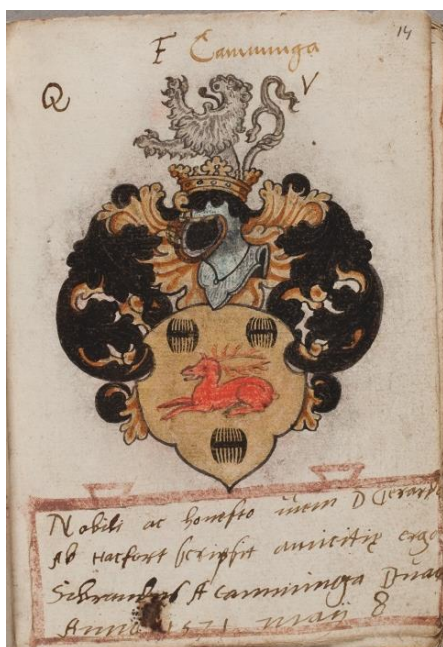 14
F Camminga
Q V
Nobili ac honesto D Gerardo
Ab Hacfort scripsit amicitiæ ergo
Sibrandus A Camminga
Anno 1571 Maii 8